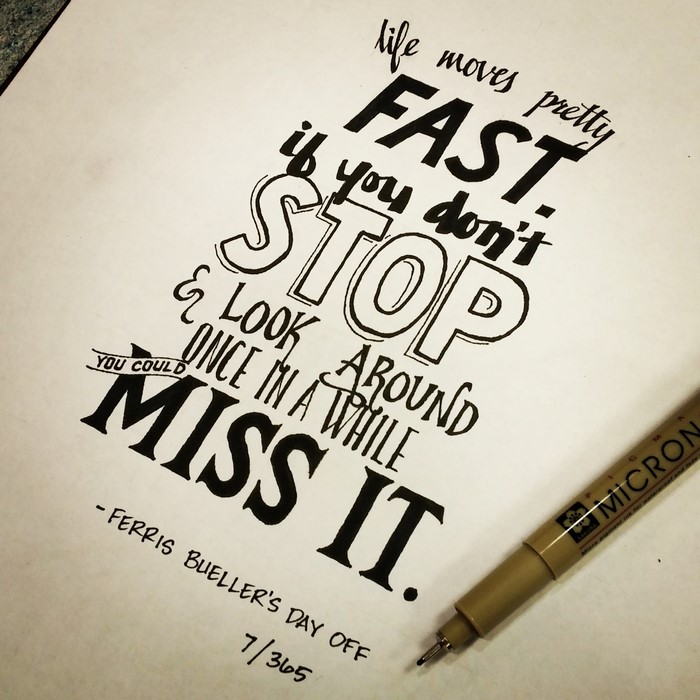 life moves pretty
FAST.
if you don't
STOP
& LOOK AROUND
ONCE IN A WHILE
YOU COULD
MISS IT.
-FERRIS BUELLER'S DAY OFF
7/365
PIGMA
MICRON